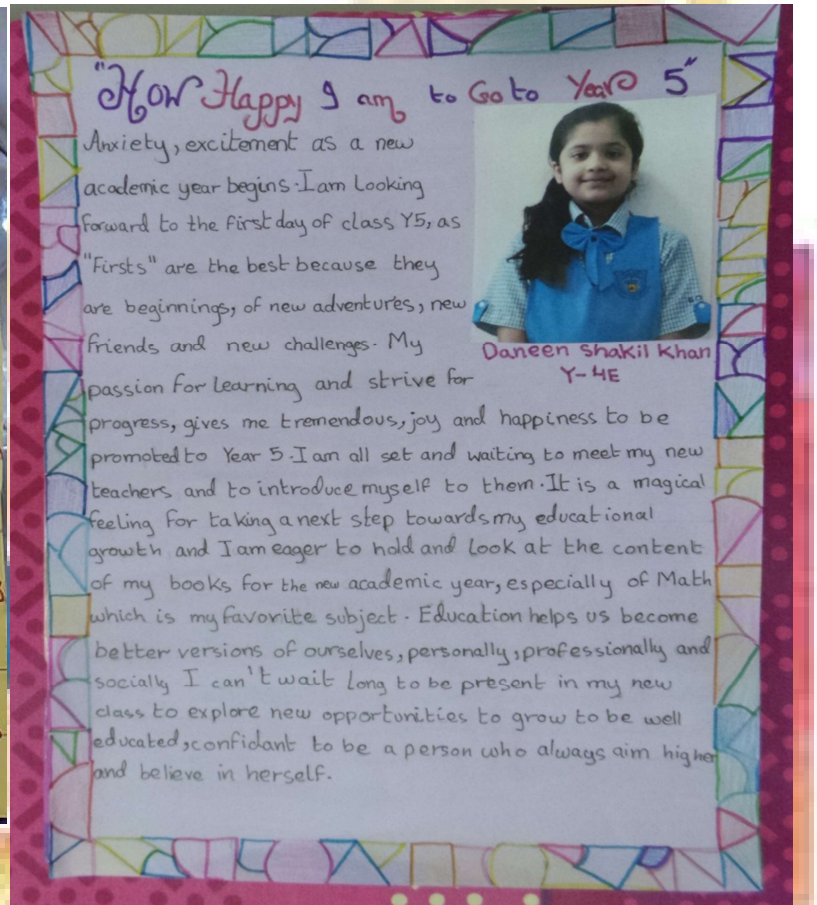 "How Happy I am to Go to Year 5"
Anxiety, excitement as a new
academic year begins. I am Looking
forward to the first day of class Y5, as
"Firsts" are the best because they
are beginnings, of new adventures, new
friends and new challenges. My
Daneen Shakil Khan
Y-4E
passion for learning and strive for
progress, gives me tremendous, joy and happiness to be
promoted to Year 5. I am all set and waiting to meet my new
teachers and to introduce myself to them. It is a magical
feeling for taking a next step towards my educational
growth and I am eager to hold and look at the content
of my books for the new academic year, especially of Math
which is my favorite subject. Education helps us become
better versions of ourselves, personally, professionally and
socially I can't wait long to be present in my new
class to explore new opportunities to grow to be well
educated, confidant to be a person who always aim higher
and believe in herself.